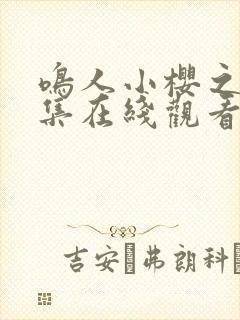 鳴人小櫻之
集在綫觀看
吉安 弗朗科